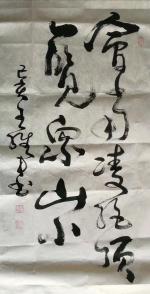 會當凌絕頂
一覽眾山小
己亥王
書